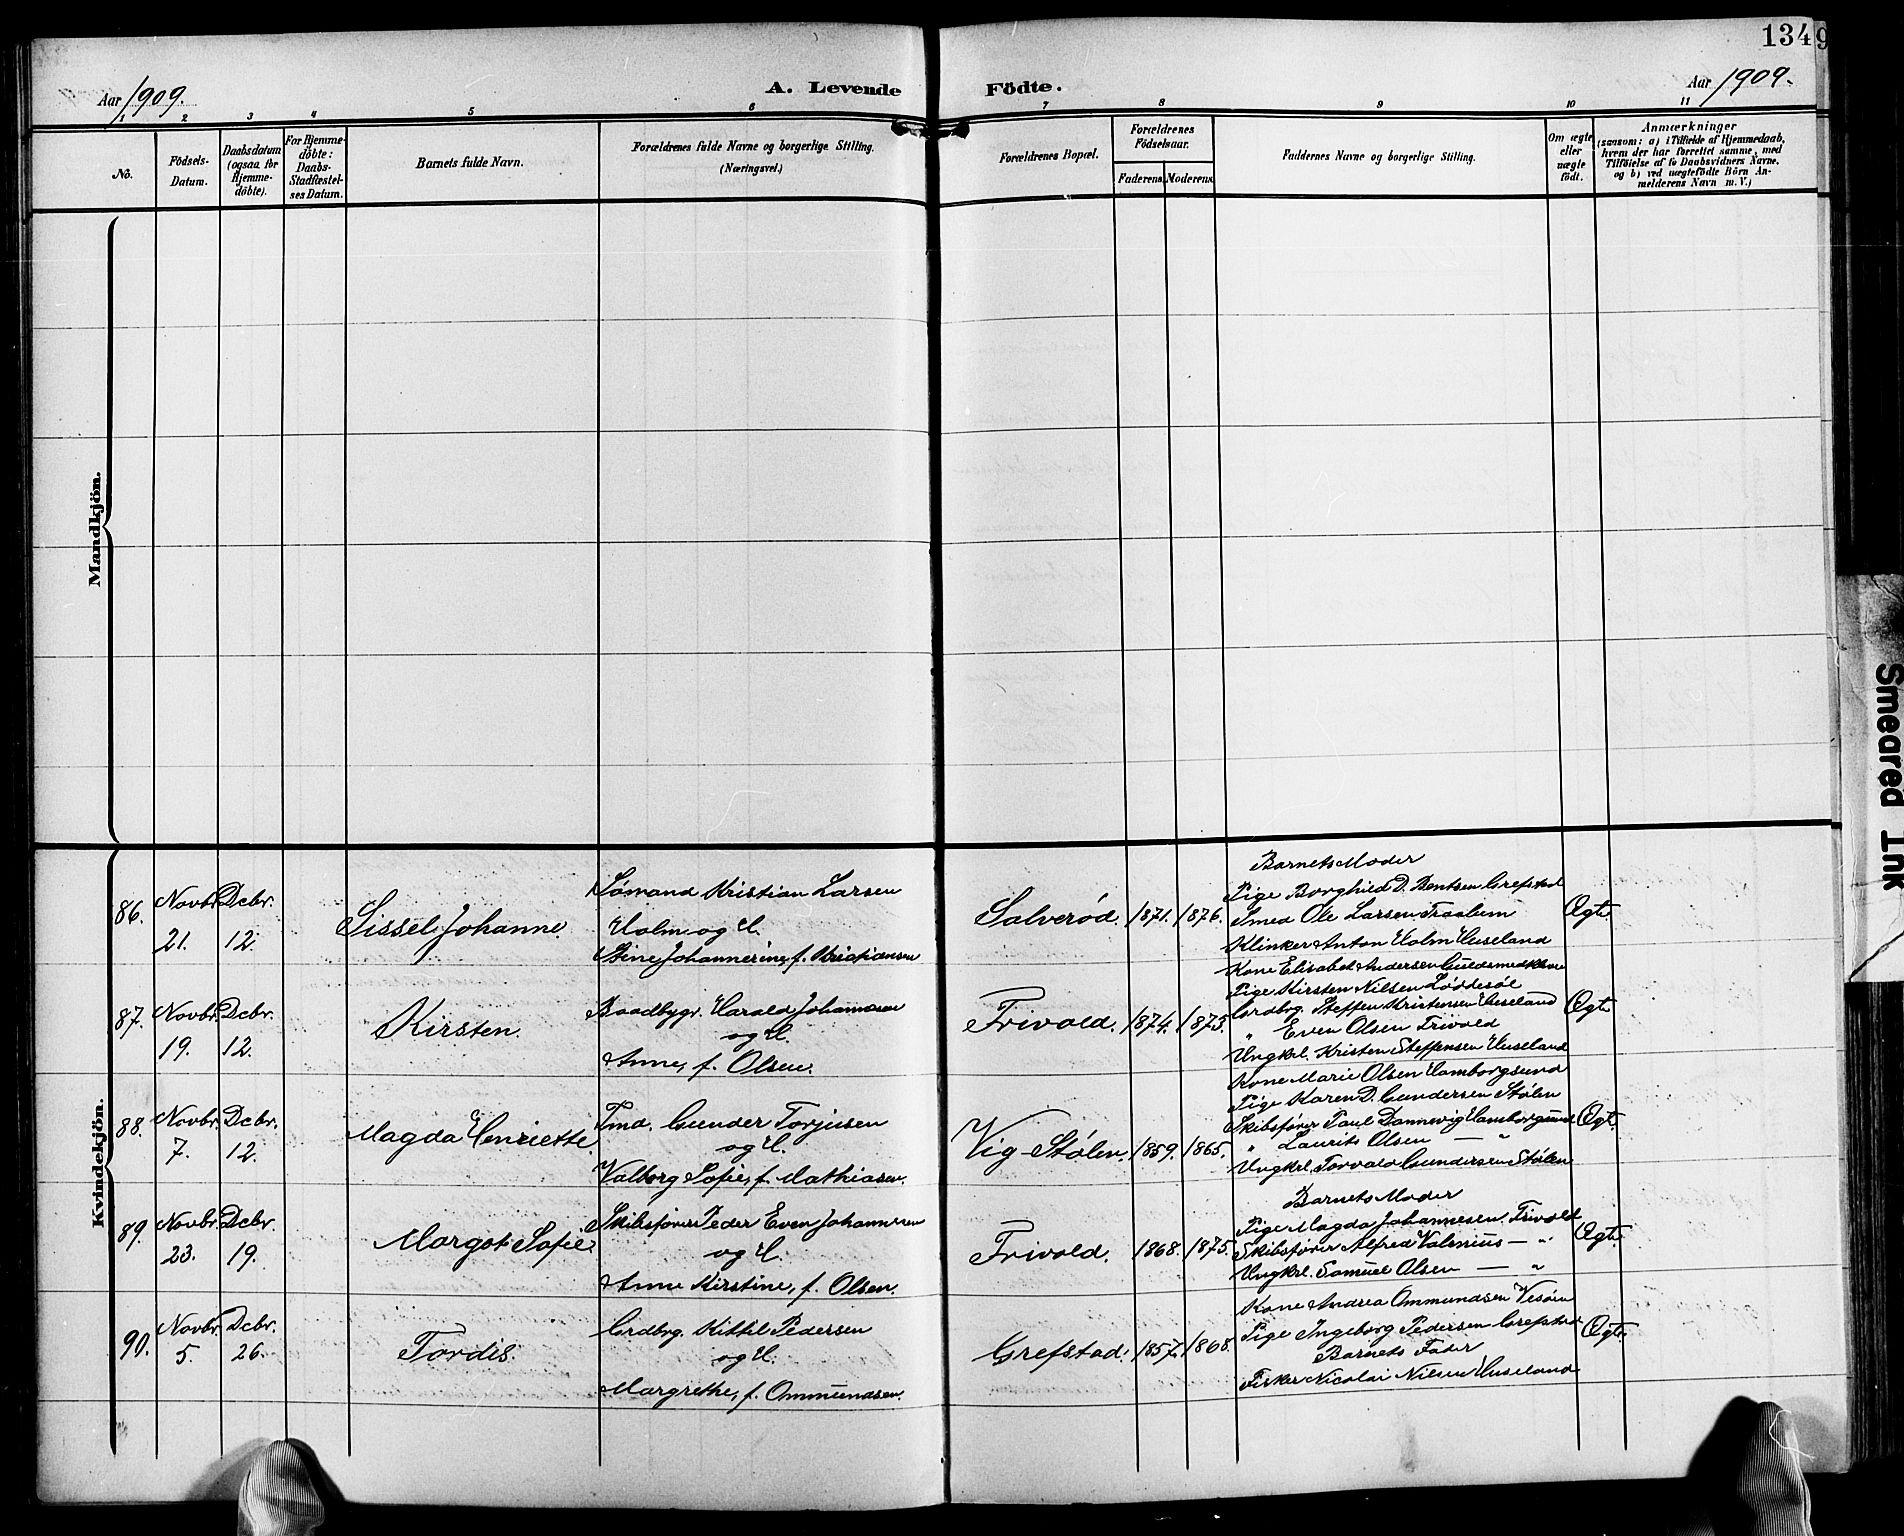 1349
Aar 1909.
A. Levende Födte.
Aar 1909.
1 2 3 4 5 6 7 8 9 10 11
No.
Födsels-
Datum.
Daabsdatum
(ogsaa for
Hjemme-
döbte).
For Hjemme-
döbte:
Daabs-
Stadfæstel-
ses Datum.
Barnets fulde Navn.
Forældrenes fulde Navne og borgerlige Stilling.
(Næringsvei.)
Forældrenes Bopæl.
Forældrenes
Födselsaar.
Faderens. Moderens.
Faddernes Navne og borgerlige Stilling.
Om ægte
eller
uægte
födt.
Anmærkninger
(saasom: a) i Tilfælde af Hjemmedaab,
hvem der har forrettet samme, med
Tilföielse af to Daabsvidners Navne,
og b) ved uægtefödte Börn An-
melderens Navn m. V.)
Mandkjön.
Kvindekjön.
86.
Novbr.
21.
Dcbr.
12.
Sissel Johanne.
Sömand Kristian Larsen
Holm og H.
Stine Johannerine, f. Kristiansen
Salveröd.
1871.
1876.
Barnets Moder
Pige Borghild D. Bentsen Grefstad
Smed Ole Larsen Fraalum
Klinker Anton Holm Huseland
Ægt.
87.
Novbr.
19.
Dcbr.
12.
Kirsten.
Baadbygr. Harald Johannesen
og H.
Anne, f. Olsen.
Frivold.
1874.
1873.
Kone Elisabet Andersen
Pige Kirsten Nilsen Löddesöl
Grdbrg. Steffen Kristensen Huseland
" Even Olsen Frivold
Ungkrl. Kristen Steffensen Huseland
Ægt.
88.
Novbr.
7.
Dcbr.
12.
Magda Henriette.
Tmd. Gunder Torjusen
og H.
Valborg Sofie, f. Mathiasen.
Vig-Stölen.
1859.
1865.
Kone Marie Olsen Hamborgsund
Pige Karen D. Gundersen Stölen
Skibsförer Paul Dannevig Hamborgsund
" Laurits Olsen — "
Ungkrl. Torvald Gundersen Stölen
Ægt.
89.
Novbr.
23.
Dcbr.
19.
Margot Sofie.
Skibsförer Peder Even Johannesen
og H.
Anne Kirstine, f. Olsen.
Frivold.
1868.
1875.
Barnets Moder
Pige Magda Johannesen Frivold
Skibsförer Alfred Valenius — "
Ungkrl. Samuel Olsen — "
Ægt.
90.
Novbr.
5.
Dcbr.
26.
Tordis.
Grdbrg. Kittil Pedersen
og H.
Margrethe, f. Ommundsen.
Grefstad.
1857.
1868.
Kone Andrea Ommundsen Vesöen
Pige Ingeborg Pedersen Grefstad
Barnets Fader
Fisker Nicolai Nilsen Huseland
Ægt.
Smeared Ink